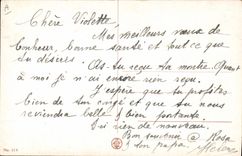 Chère Violette
Mes meilleurs vœux de
bonheur, bonne santé et tout ce que
tu désires. As-tu reçu la montre. Quant
à moi je n'ai encore rien reçu.
J'espère que tu profites
bien de ton congé et que tu nous
reviendra belle & bien portante.
Ici rien de nouveau.
Bon souvenir @ Rosa
& ton papa